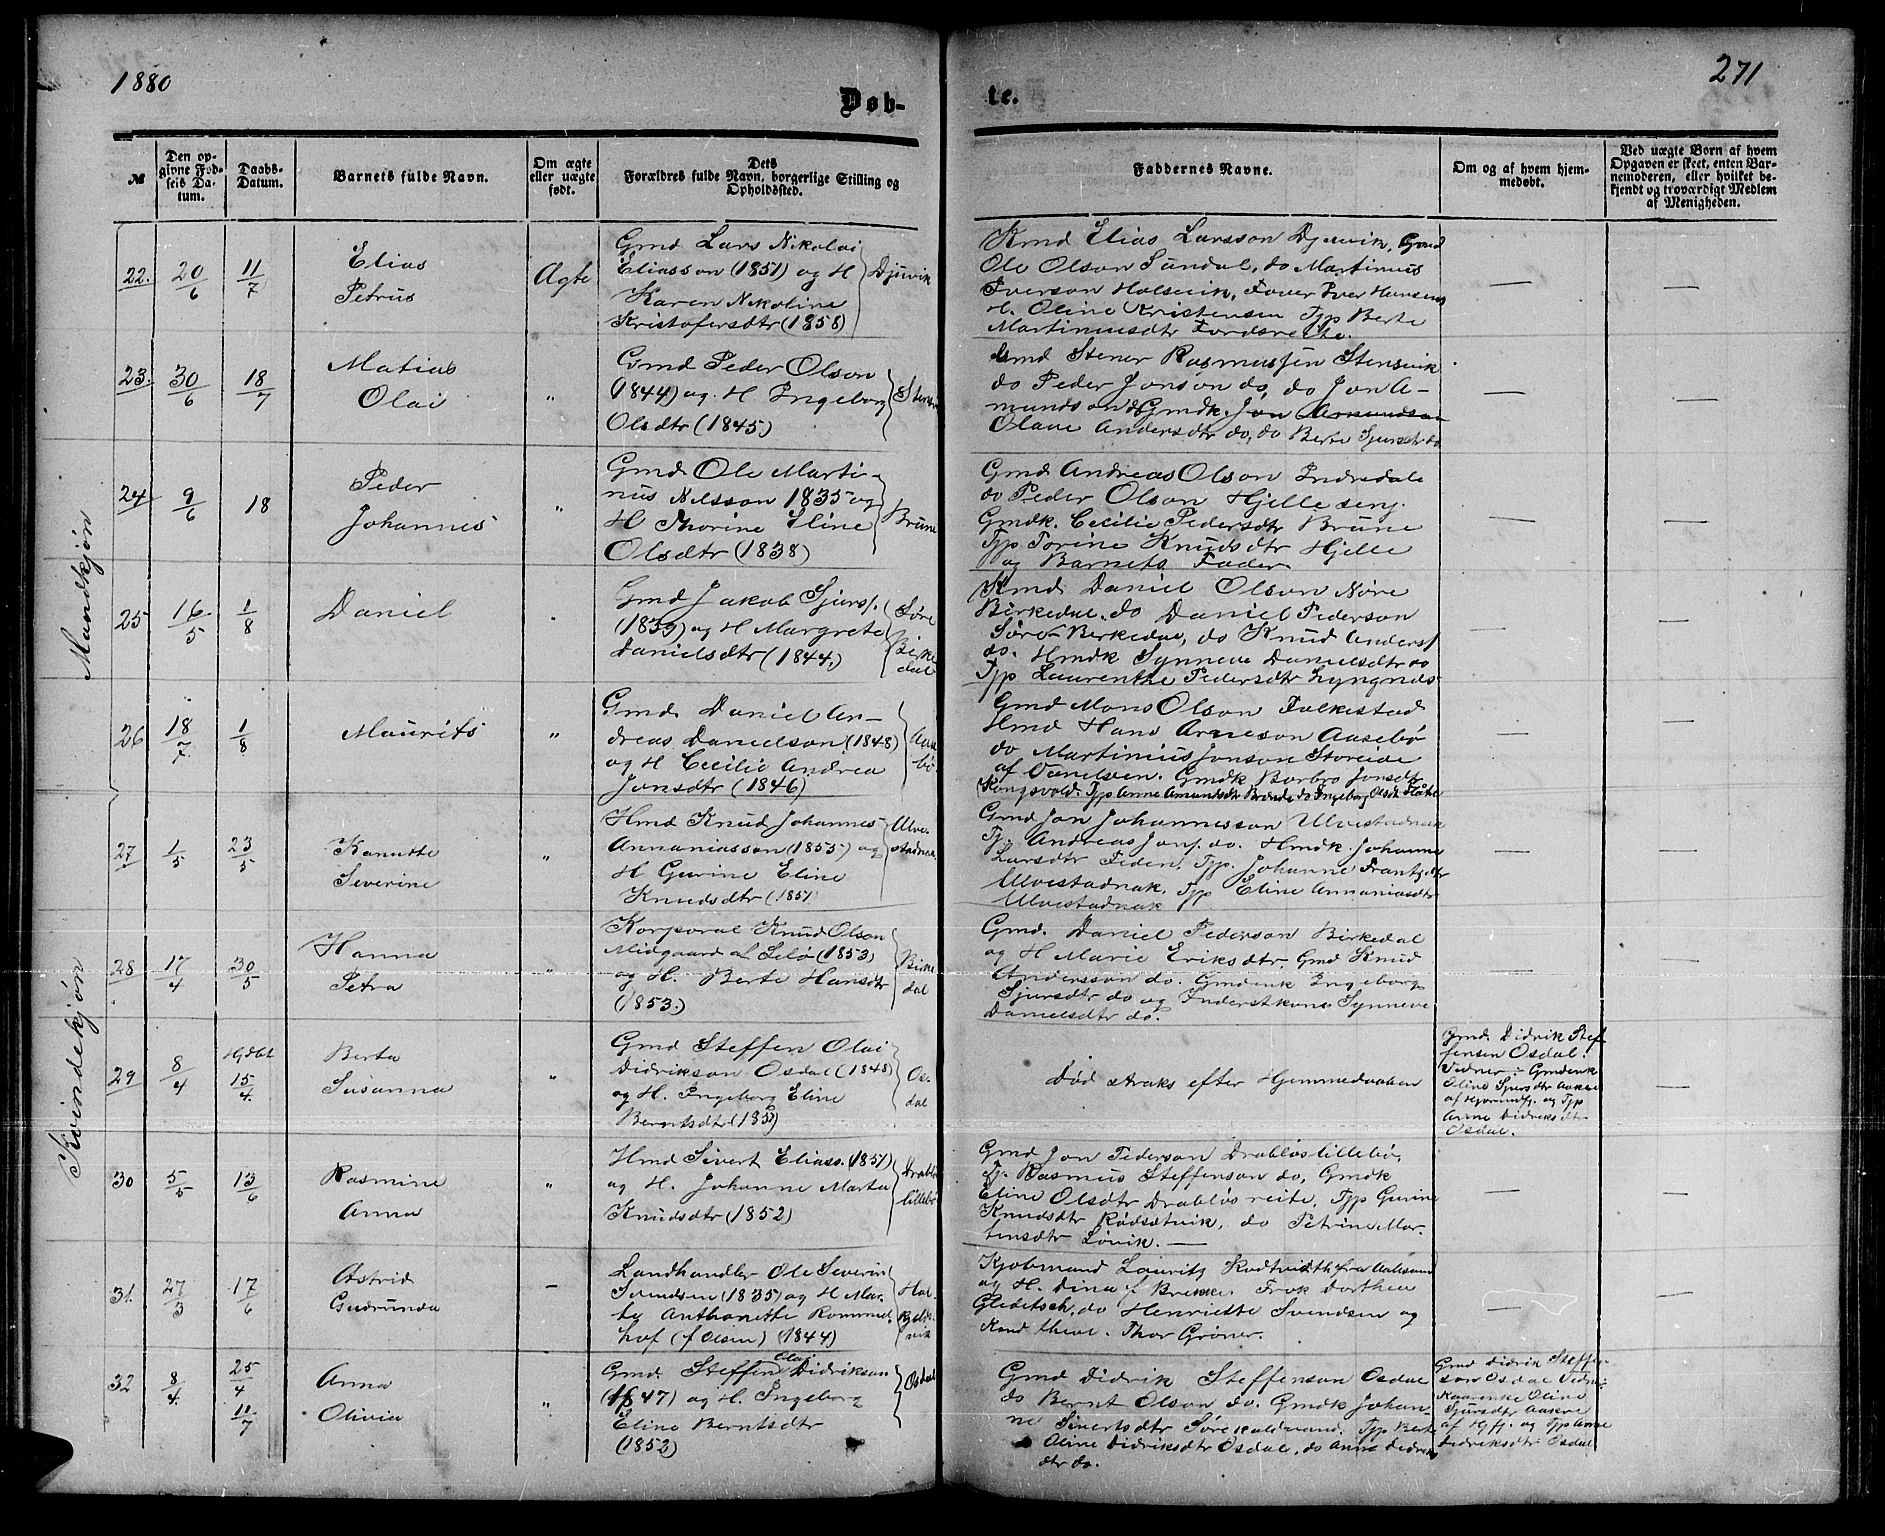 1880
271
Døb-
te.
№
Den op-
givne Fød-
sels Da-
tum.
Daabs-
Datum.
Barnets fulde Navn.
Om ægte
eller uægte
født.
Dets
Forældres fulde Navn, borgerlige Stilling og
Opholdssted.
Faddernes Navne.
Om og af hvem hjem-
medøbt.
Ved uægte Børn af hvem
Opgaven er skeet, enten Bar-
nemoderen, eller hvilket be-
kjendt og troværdigt Medlem
af Menigheden.
Mandkjøn
22. 20/6 11/7
Elias
Petrus
Ægte
Gmd Lars Nikolai
Eliasson (1851) og H
Karen Nikoline
Kristofersdtr (1858)
Djuvik
Kmd Elias Larsson Djuvik, Gmd
Ole Olson Sundal, do Martinus
Iverson Holsvik, Iver Hansen
H. Oline Kristensen Tjp Berte
Martinusdtr
23. 30/6 18/7
Matias
Olai
"
Gmd Peder Olson
(1844) og H Ingeborg
Olsdtr (1845)
Gmd Stener Rasmussen Stensvik
do Peder Jonson do, do Jon A-
mundson do Gmdk. Jon Amundson
Olave Andersdtr do, do Berte Sjursdtr do
24. 9/6 18
Peder
Johannes
"
Gmd Ole Marti-
nus Nilsson 1835 og
H Thorine Eline
Olsdtr (1838)
Brune
Gmd Andreas Olson Indredale
do Peder Olson Hjelleseng.
Gmdk. Cecilie Pedersdtr Brune
Tjp Torine Knudsdtr Hjelle
og Barnets Fader
25 16/5 1/8
Daniel
"
Gmd Jakob Sjurs.
(1839) og H Margrete
Danielsdtr (1844)
Søre
Birke
dal
Kmd Daniel Olson Nøre
Birkedal, do Daniel Pederson
Søre Birkedal, do Knud Anders
do. Hmdk Synneve Danielsdtr do
Tjp Laurenthe Pedersdtr
26 18/7 1/8
Maurits
"
Gmd. Daniel An-
dreas Danielson (1848)
og H Cecilie Andrea
Jonsdtr (1846)
Aase
bø.
Gmd Mons Olson Folkestad
Hmd Hans Arneson Aasebø
do Martinius Jonson Storeide
af Vanelven. Gmdk Barbro Jonsdtr
Kongsvold. Tjp Anne Amundsdtr do Ingeborg Olsdtr
Kvindekjøn
27 1/5 23/5
Kanutte
Severine
"
Hmd Knud Johannes
Annaniasson (1855) og
H Gurine Eline
Knudsdtr (1851
Ulve-
stadnak.
Gmd Jon Johannesson Ulvestadnak
Tj. Andreas Jons. do. Hmdk. Johanne
Larsdtr Feden, Tjp. Johanne Frantsdtr
Ulvestadnak, Tjp Eline Annaniasdtr
Ulvestadnak
28 17/4 30/5
Hanna
Petra
"
Korporal Knud Olson
Midgaard af Selø (1853)
og H. Berte Hansdtr
(1853.)
Birke
dal
Gmd. Daniel Pederson Birkedal
og H Marie Eriksdtr, Gmd Knud
Andersson do. Gmdenk Ingeborg
Sjursdtr do og Inderstkone Synneve
Danielsdtr do.
29 8/4 Hjdbt 15/4.
Berta
Susanna
"
Gmd Steffen Olai
Didrikson Osdal (1848)
og H. Ingeborg Eline
Berntsdtr (1852)
Os-
dal
Død straks efter Hjemmedaaben
Gmd. Didrik Stef
fensen Osdal.
Vidner: Gmdenk
Oline Sjursdtr Aakre
af Hjørundfj. og Tjp
Anne Didriksdtr
Osdal.
30 5/5 13/6
Rasmine
Anna
"
Hmd Sivert Eliass. (1851)
og H. Johanne Marta
Knudsdtr (1852)
Drabløs
lillebø
Gmd Jon Pederson Drabløslillebø,
Tj. Rasmus Steffenson do, Gmdk
Eline Olsdtr Drabløsreite, Tjp Gurine
Knudsdtr Rødsætvik, do Petrine Mar-
tinsdtr Løvik. —
31. 27/3 17/6
Astrid
Gudrunda
–
Landhandler Ole Severin
Svendsen (1835) og H Mar-
the Anthonette Rommel-
hof (f Olsen) (1844)
Kjøbmand Lauritz Rodtvidth fra Aalesund
og H. Dina f Brekke. Frøk Dorthea
Gleditsch, do Henriette Svendsen og
Kand theol. Thor Grøner.
32 8/4. 25/4 11/7
Anna
Olivia
"
Gmd Steffen Olai Didrikson
(1847) og H. Ingeborg
Eline Berntsdtr
(1852)
Osdal
Gmd Didrik Steffenson Osdal
do Bernt Olson do. Gmdk Johan-
ne Sivertsdtr Tjp Berte
Oline Didriksdtr Osdal, do Anne Didriks
dtr do.
Gmd Didrik Steffen-
son Osdal Vidner
Oline
Sjursdtr Aakre
af Hjfj. og Tjp Anne
Didriksdtr Osdal